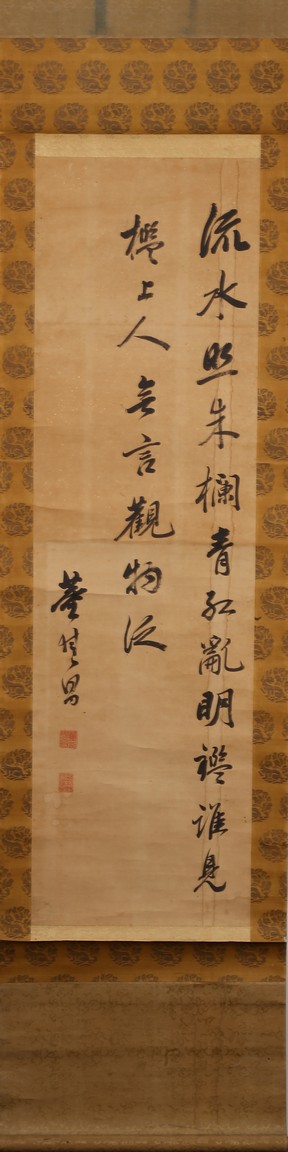 流水照朱欄青紅亂明鑑誰見
檻上人無言觀物泛
董其昌